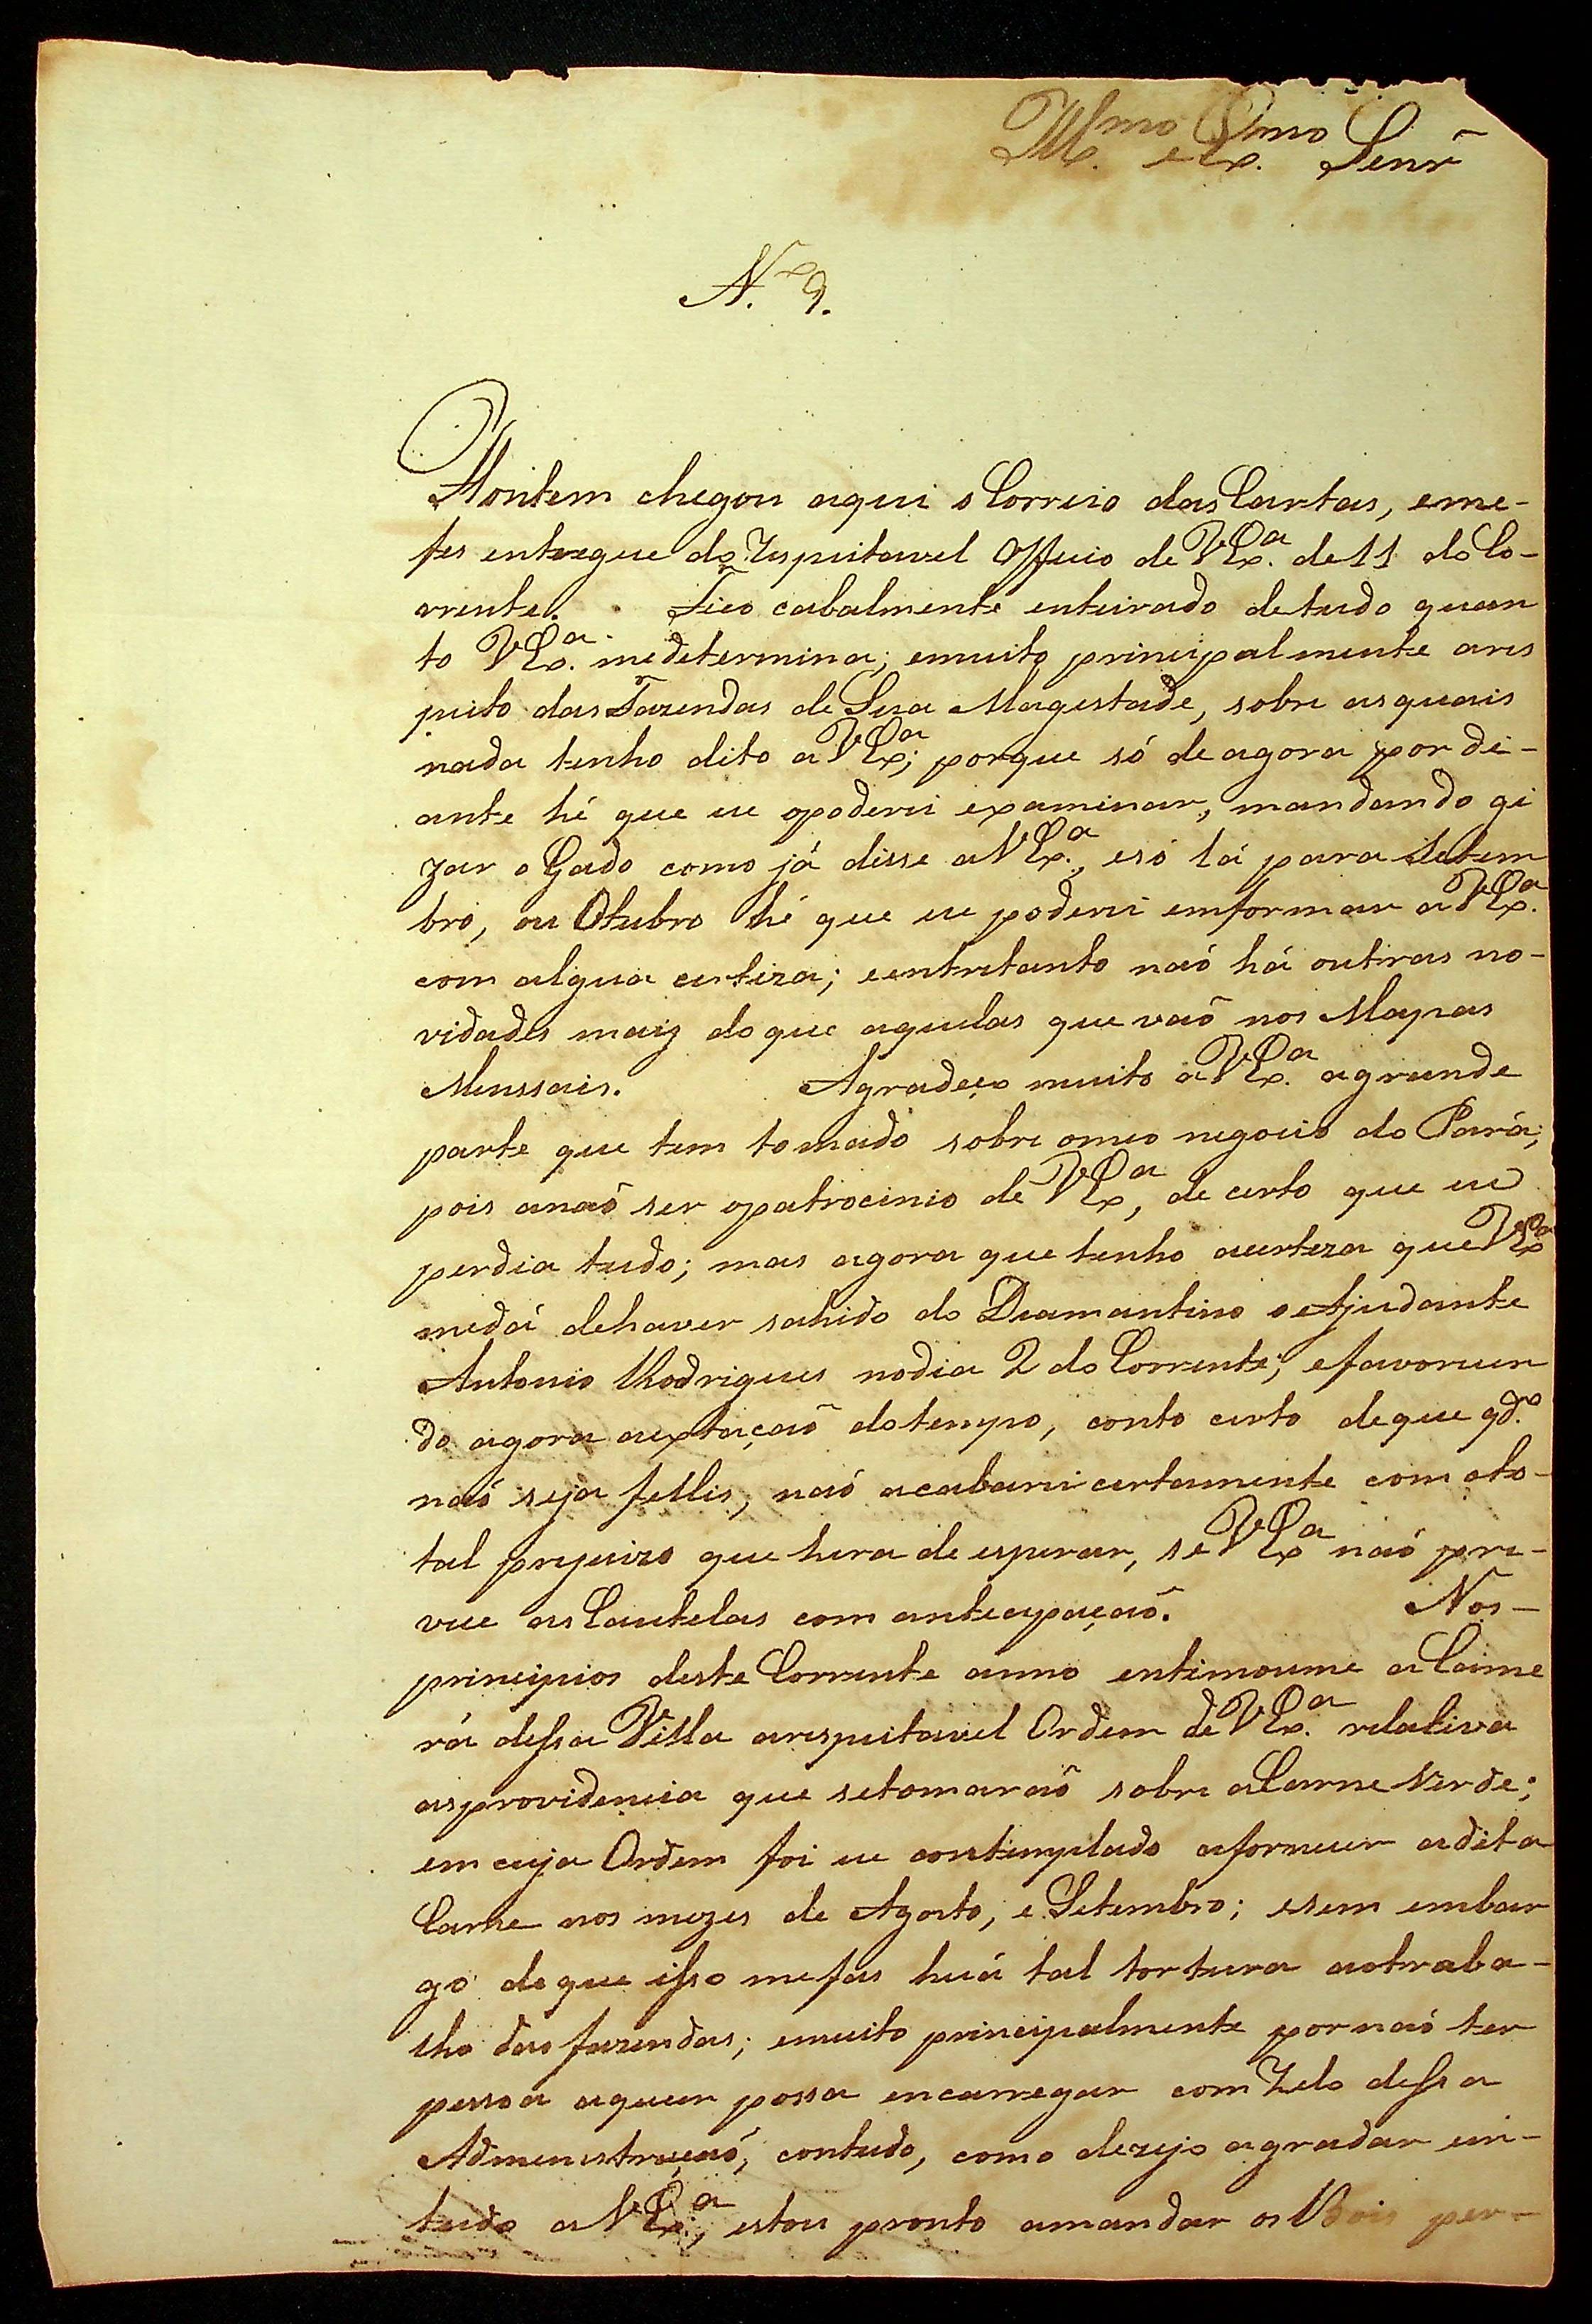 Ill.mo e Ex.mo Senr̃
N.o 9.
Hontem chegou aqui o Correio das Cartas, eme-
fes entregue do Respeitavel Officio de VEx.a de 11 do Co-
rrente. Fico cabalmente enteirado detudo quan
to VEx.a medetermina; emuito principalmente ares
peito das Fazendas de Sua Magestade, sobre asquais
nada tenho dito a VEx.a; porque só de agora por di-
ante hé que eu opoderei examinar, mandando gi
zar o Gado como já disse a VEx.a, esó lá para Setem
bro, ou Otubro hé que eu poderei emformar a VEx.a
com algua certeza; eentretanto naõ há outras no-
vidades maiz do que aquelas que vaõ nos Mapas
Menssais. Agradeço muito a VEx.a agrande
parte que tem tomado sobre omeo negocio do Pará;
pois anaõ ser opatrocinio de VEx.a, de certo que eu
perdia tudo; mas agora que tenho acerteza que VEx.a
medá dehaver sahido do Diamantino o Ajudante
Antonio Rodrigues nodia 2 do Corrente; efavorecen
do agora aextaçaõ do tempo, conto certo deque qd.o
naõ seja fellis, naõ acabarei certamente com oto-
tal prejuizo que hera de esperar, se VEx.a naõ pre-
vice as Cautelas com antecipaçaõ. Nos-
principios deste Corrente anno entimoume a Came
rá dessa Villa arespeitavel Ordem de VEx.a relativa
asprovidencia que setomaraõ sobre a Carne Verde;
em cuja Ordem foi eu contemplado afornecer adita
Carne nos mezes de Agosto, e Setembro; esem embar
go de que isso mefas huá tal tortura aotraba-
lho das fazendas; emuito principalmente por naõ ter
pessoa aquem possa encarregar com Zelo dessa
Admenistraçaõ, contudo, como dezejo agradar em-
tudo a VEx.a, estou pronto amandar os Bois per-